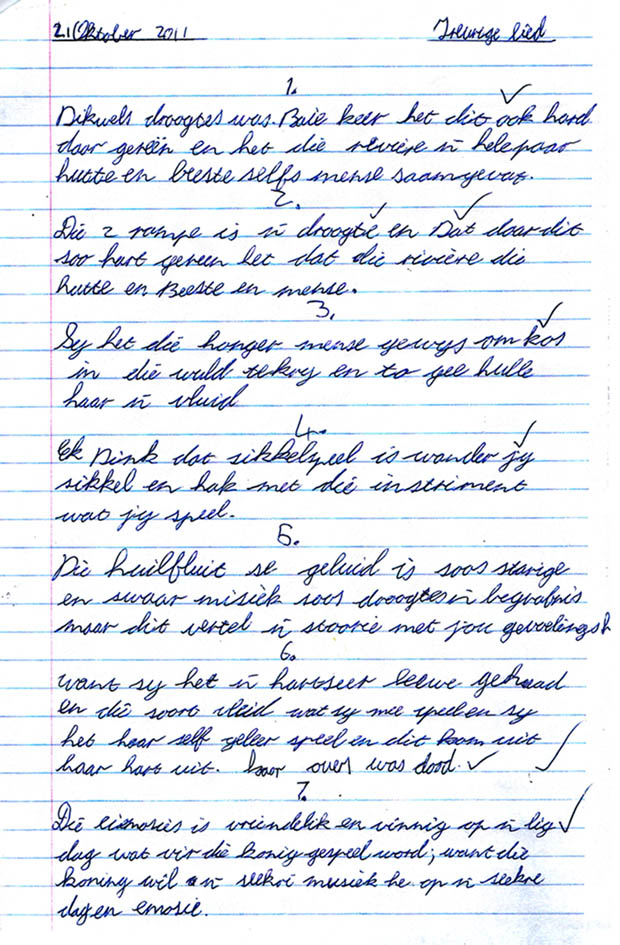 21 Oktober 2011 Treurige lied
1.
Dikwels droogtes was. Baie keer het dit ook hard
daar gereën en het die revière 'n helepaar
hutte en beeste selfs mense saamgevat.
2.
Die 2 rampe is 'n droogte en Dat daar dit
soo hart gereen het dat die rivière die
hutte en Beeste en mense.
3.
Sy het die honger mense gewys om kos
in die wuld tekry en to gee hulle
haar 'n vluid
4.
Ek Dink dat sikkelspeel is wander jy
sikkel en hak met die instriment
wat jy speel.
5.
Die huilfluit se geluid is soos starige
en swaar misiek soos droogtes 'n begrafnis
maar dit vertel 'n stoorie met jou gevoelings
6.
want sy het 'n hartseer leewe gehaad
en die soort vleid wat sy mee speel en sy
het haar self geleer speel en dit kom uit
haar hart uit. haar ouers was dood.
7.
Die eimosies is vriendelik en vinnig op 'n lig
dag wat vir die konig gespeel word; want die
koning wil 'n seekre musiek he op 'n seekre
dag en emosie.